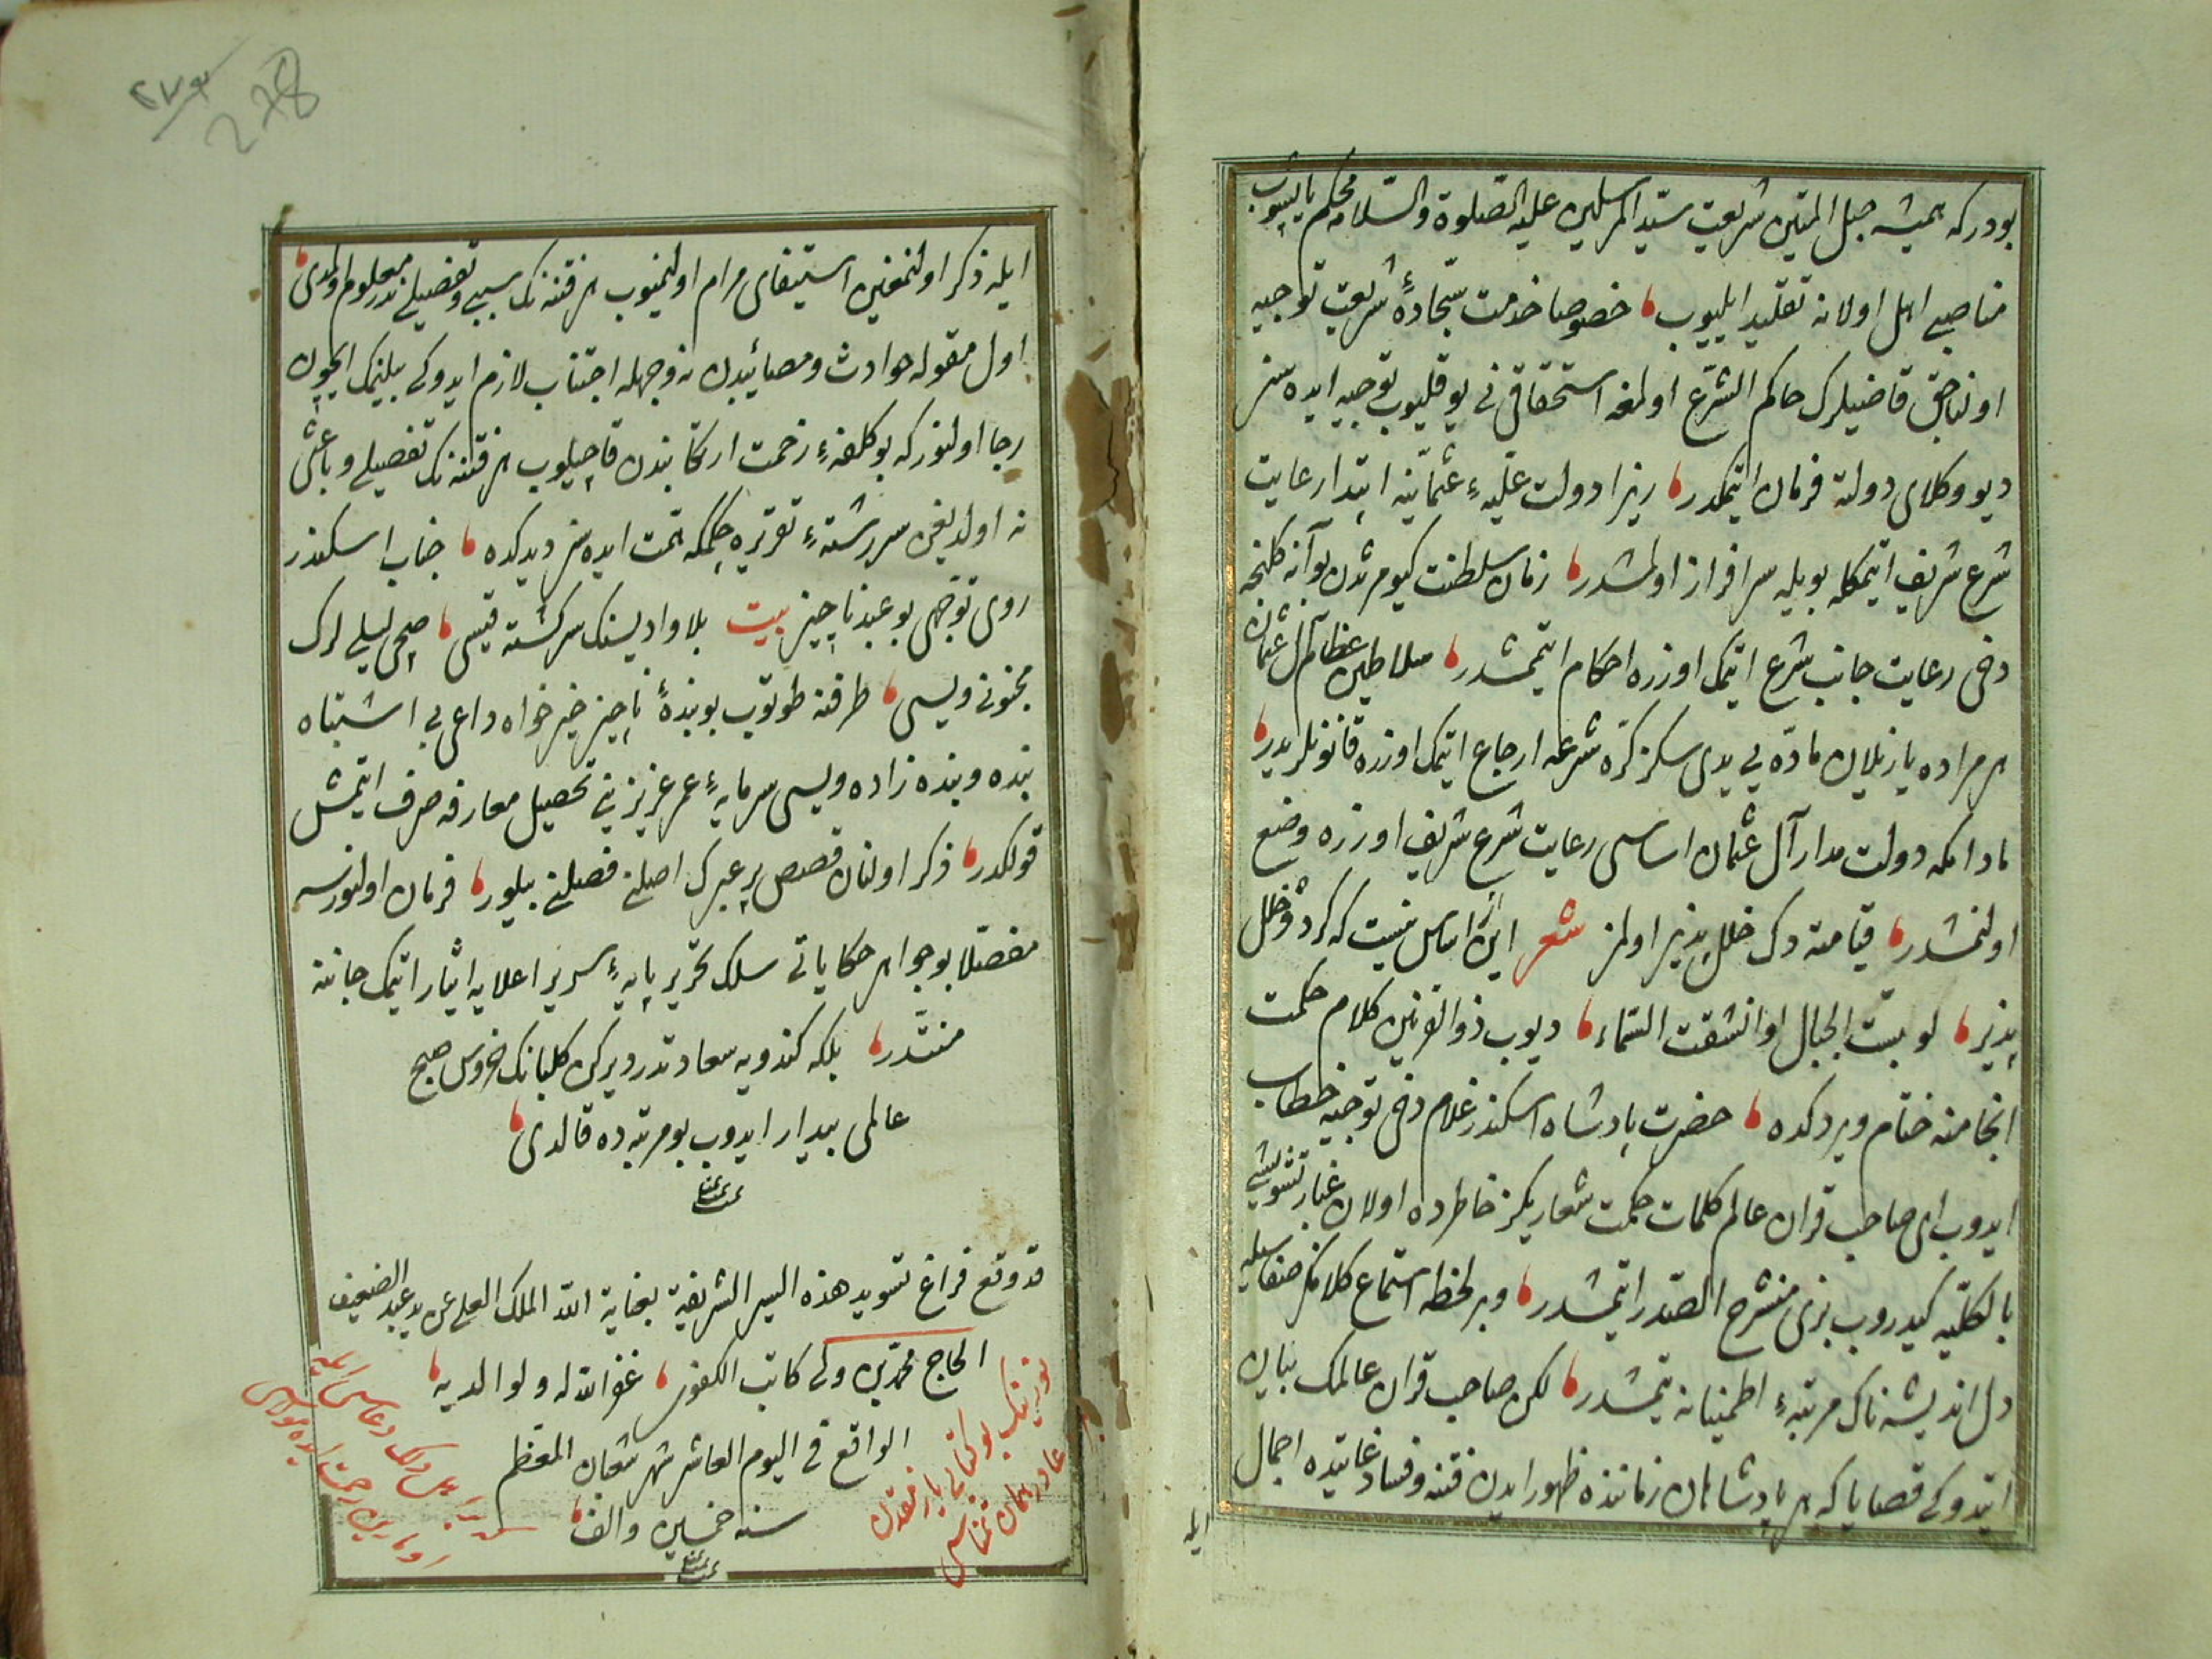 بودرکه همیشه حبل المتین شریعت سید المرسلین علیه الصلوة والسلامه محکم یاپیشوب
مناصبی اهل اولانه تقلید ایلییوب خصوصا خدمت سجادۀ شریعت توجیه
اولنجق قاضیلرک حاکم الشرع اولمغه استحقاقی نی یوقلیوب توجیه ایده سز
دیو وکلای دولته فرمان ایتمکدر زیرا دولت علیهٔ عثمانیه ابتدا رعایت
شرع شریف ایتمکله بویله سرافراز اولمشدر زمان سلطنت کیومرثدن بو آنه کلنجه
دخی رعایت جانب شرع ایتمک اوزره احکام ایتمشدر سلاطین عظام آل عثمان
هر مراده یازیلان ماده یی یدی سکز کره شرعه ارجاع ایتمک اوزره قانونلریدر
مادامکه دولت مدار آل عثمان اساسی رعایت شرع شریف اوزره وضع
اولنمشدر قیامته دک خلل پذیر اولمز شعر این آن اساس نیست که گردد خلل
پذیر لو بست الجبال او انشقت السماء دیوب ذو القرنین کلام حکمت
انجامنه ختام ویردکده حضرت پادشاه اسکندر غلام دخی توجیه خطاب
ایدوب ای صاحب قران عالم کلمات حکمت شعاریکز خاطرده اولان غبار تشویشی
بالکلیه کیدروب بزی منشرح الصدر ایتمشدر و بر لحظه استماع کلامکز صفاسیله
دل اندیشه ناک مرتبهٔ اطمینانه یتمشدر لکن صاحب قران عالمک بیان
ایتدوکی قضایا که هر پادشاهان زماننده ظهور ایدن فتنه و فساد غایتده اجمال
ایله
٢٧٨
278
ایله ذکر اولنمغین استیفای مرام اولنمیوب هر فتنه نک سببی و تفصیلی ندر معلوم اولمدی
اول مقوله حوادث و مصائبدن نه وجهله اجتناب لازم ایدوکی بیلنمک ایچون
رجا اولنور که بو کلفهٔ زحمت ارتکابندن قاچیلیوب هر فتنه نک تفصیلی و باعثی
نه اولدیغن سررشتهٔ تقریره چکمکه همت ایده سز دیدکده جناب اسکندر
روی توجهی بو عبد ناچیز بیت بلا وادیسنک سرکشته قیسی صچی لیلی لرک
مجنونی ویسی طرفنه طوتوب بو بندۀ ناچیز خیرخواه داعی بی اشتباه
بنده و بنده زاده ویسی سرمایهٔ عمر عزیزینی تحصیل معارفه صرف ایتمش
قولکدر ذکر اولنان قصص پر عبرک اصلنی فصلنی بیلور فرمان اولنورسه
مفصلا بو جواهر حکایاتی سلک تحریر پایهٔ سریر اعلایه ایثار ایتمک جاننه
منتدر بلکه کندویه سعادتدر دیرکن کلبانک خروس صبح
عالمی بیدار ایدوب بو مرتبه ده قالدی
تمت
قد وقع فراغ تسوید هذه السیر الشریفة بعنایة الله الملک العلی عن ید عبد الضعیف
الحاج محمد کاتب الکفوی غفر الله له ولوالدیه
الواقع فی الیوم العاشر شهر شعبان المعظم
سنه خمسین والف
تمت
بو کتابی یازمقدن